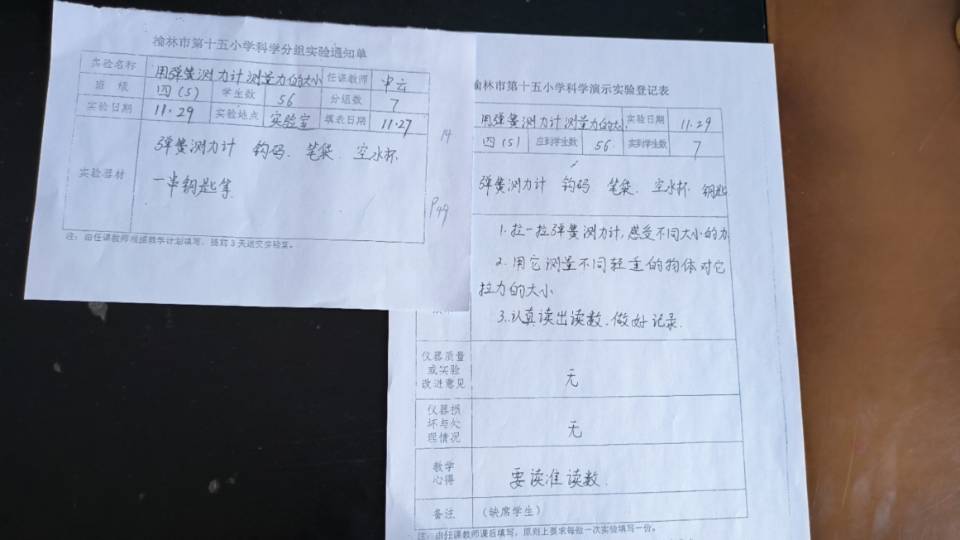 榆林市第十五小学科学分组实验通知单
实验名称 用弹簧测力计测量力的大小 任课教师
班 级 四(5) 学生数 56 分组数 7
实验日期 11.29 实验地点 实验室 填表日期 11.27
实验器材 弹簧测力计 钩码、笔袋、空水杯
一串钥匙等
注：由任课教师根据教学计划填写，提前3天送交实验室。
14
P49
榆林市第十五小学科学演示实验登记表
用弹簧测力计测量力的大 实验日期 11.29
四(5) 应到学生数 56 实到学生数 7
弹簧测力计 钩码 笔袋、空水杯 钥匙
1.拉一拉弹簧测力计，感受不同大小的力
2.用它测量不同轻重的物体对它
拉力的大小
3.认真读出读数，做好记录.
仪器质量
或实验
改进意见
无
仪器损
坏与处
理情况
无
教学
心得
要读准读数.
备注 (缺席学生)
注：由任课教师课后填写，原则上要求每做一次实验填写一份。